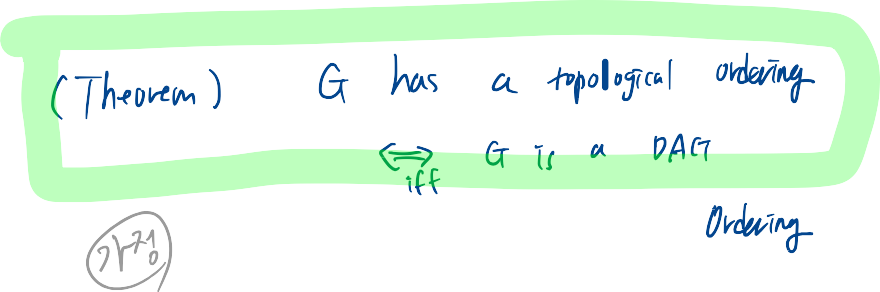 (Theorem) G has a topological ordering
⟺ iff G is a DAG
Ordering
가정